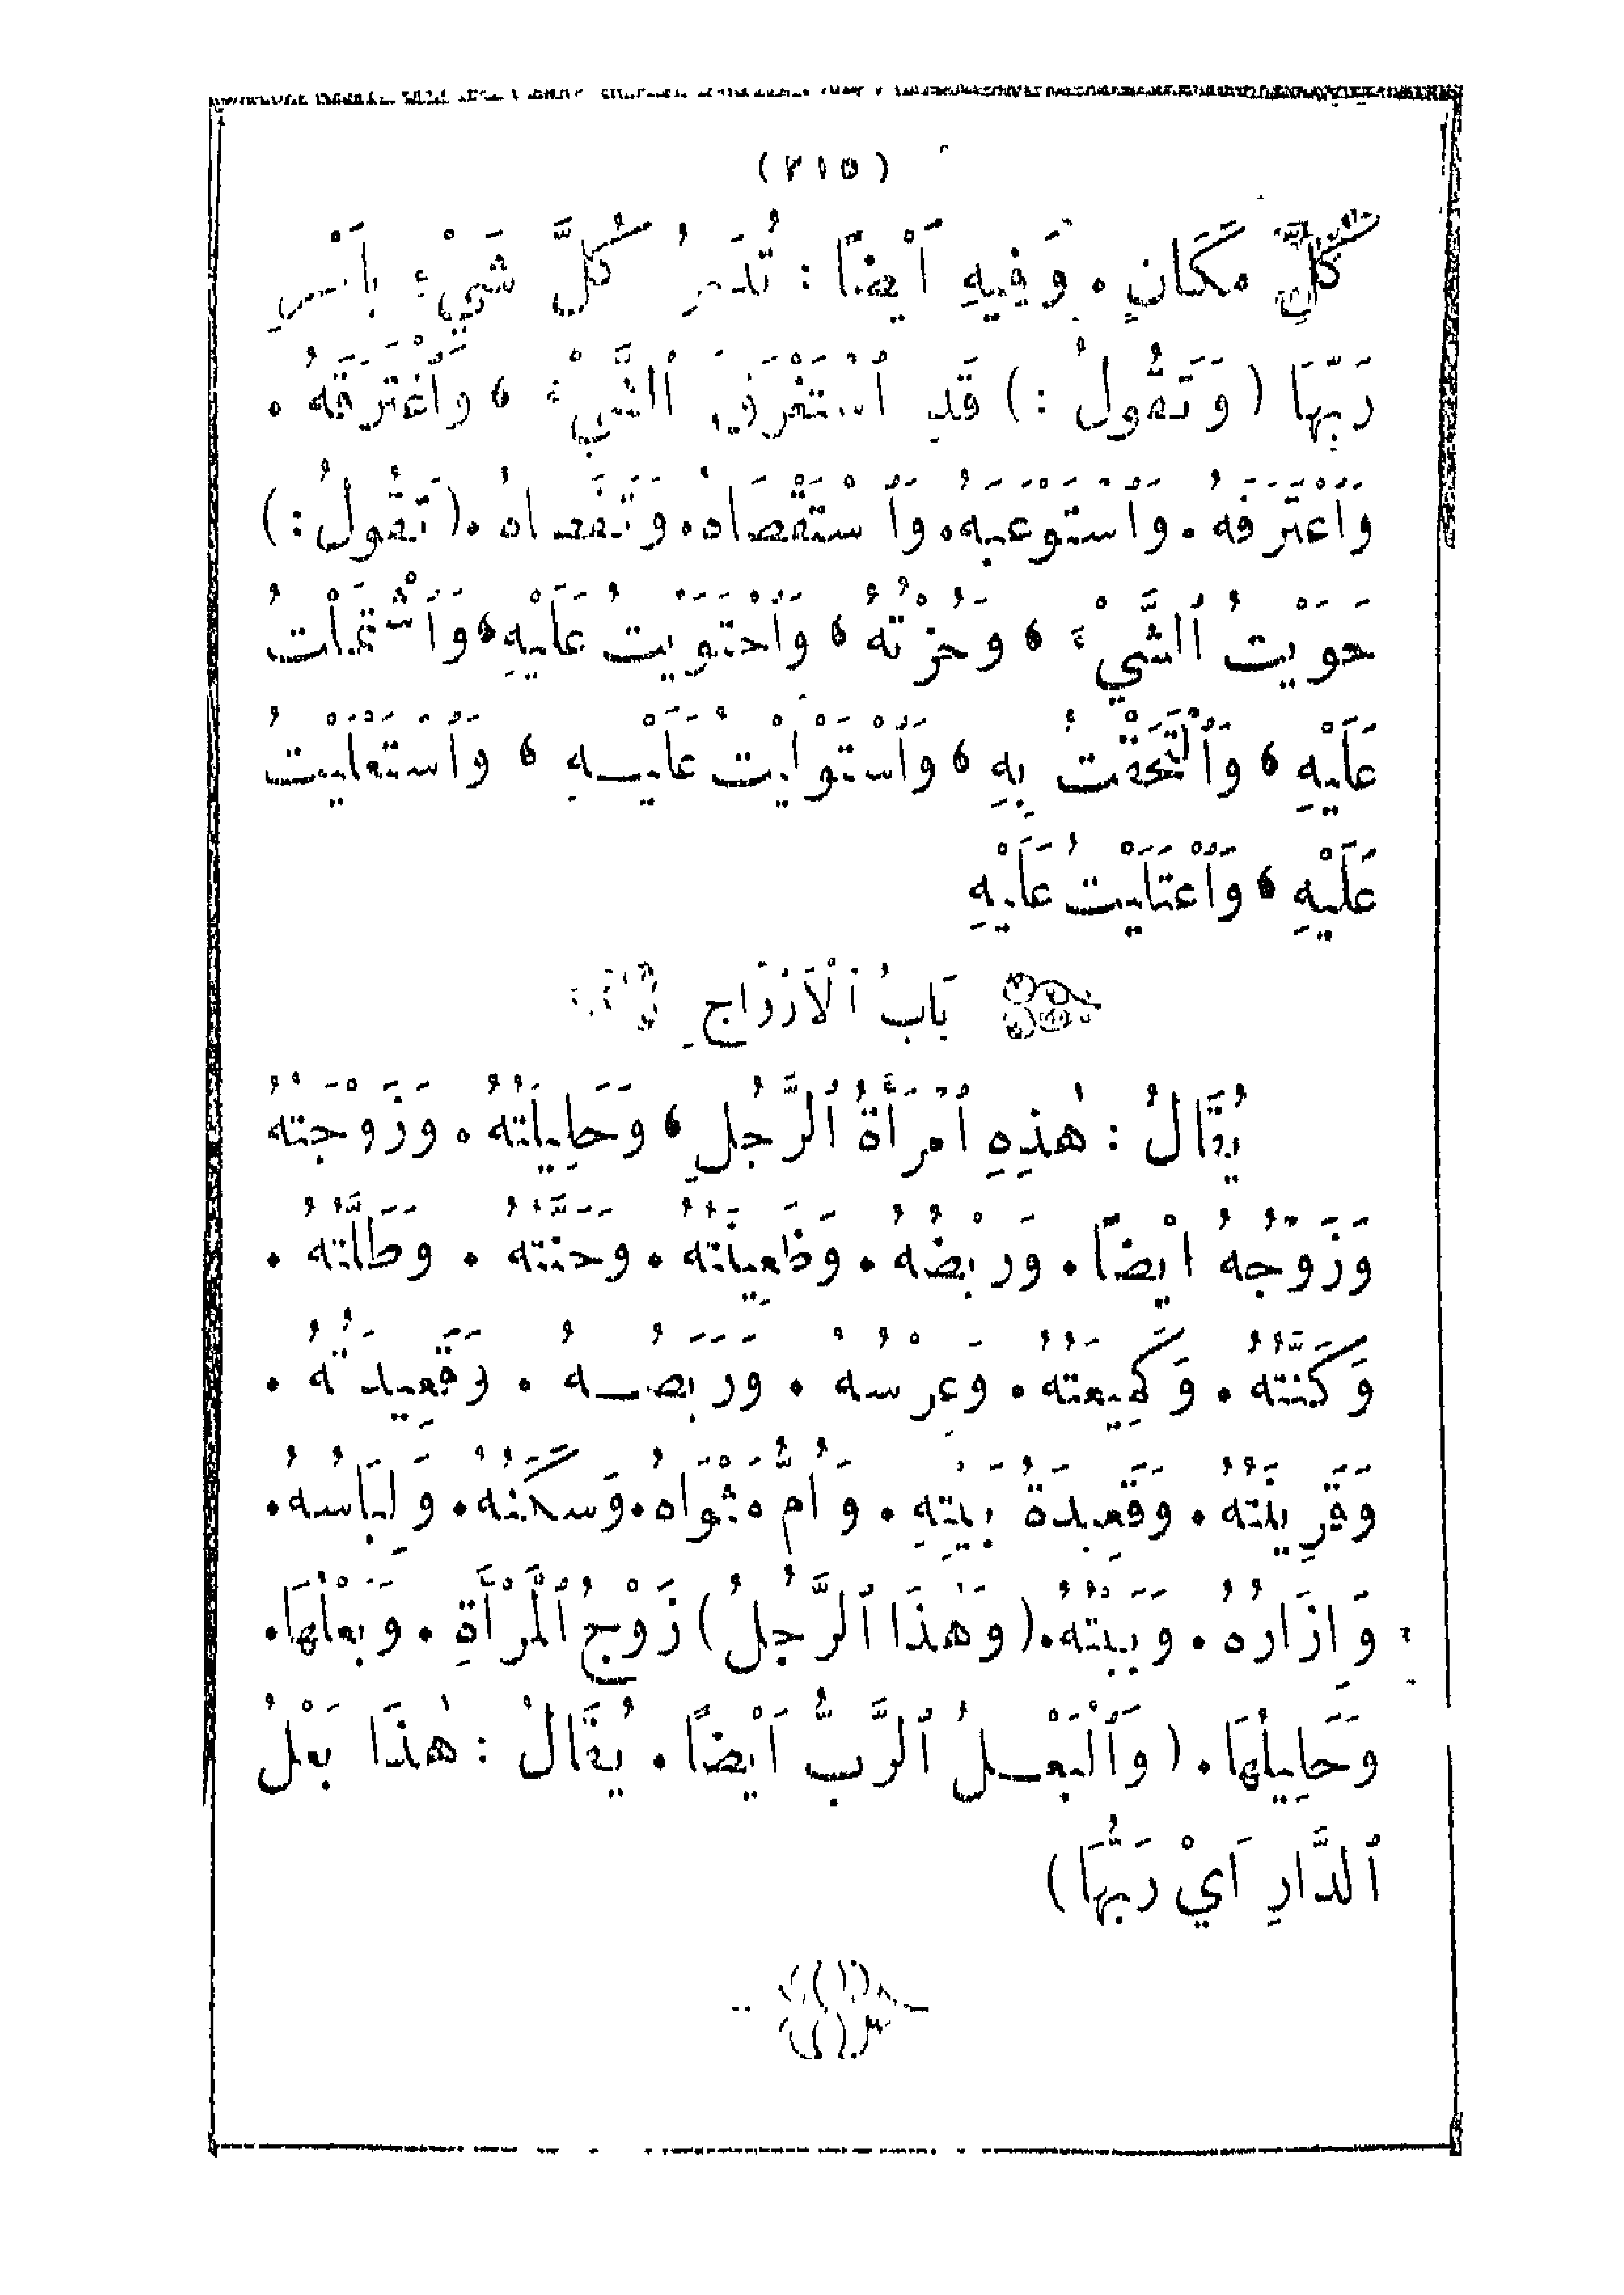 (٢١٥)
كُلِّ مَكَانٍ. وَفِيهِ أَيْضًا: تُدَمِّرُ كُلَّ شَيْءٍ بِأَمْرِ
رَبِّهَا (وَتَقُولُ:) قَدِ ٱسْتَغْرَقَ ٱلشَّيْءَ، وَٱغْتَرَقَهُ.
وَٱعْتَرَفَهُ. وَٱسْتَوْعَبَهُ. وَٱسْتَقْصَاهُ. وَتَقَصَّاهُ. (تَقُولُ:)
حَوَيْتُ ٱلشَّيْءَ، وَحُزْتُهُ، وَٱحْتَوَيْتُ عَلَيْهِ، وَٱشْتَمَلْتُ
عَلَيْهِ، وَٱلْتَحَفْتُ بِهِ، وَٱسْتَوْلَيْتُ عَلَيْهِ، وَٱسْتَعْلَيْتُ
عَلَيْهِ، وَٱعْتَلَيْتُ عَلَيْهِ
بَابُ ٱلْأَزْوَاجِ
يُقَالُ: هٰذِهِ ٱمْرَأَةُ ٱلرَّجُلِ، وَحَلِيلَتُهُ. وَزَوْجَتُهُ
وَزَوْجُهُ أَيْضًا. وَرَبْضُهُ. وَظَعِينَتُهُ. وَحَنَّتُهُ. وَطَلَّتُهُ.
وَكَنَّتُهُ. وَكَمِيعَتُهُ. وَعِرْسُهُ. وَرَبَضُهُ. وَقَعِيدَتُهُ.
وَقَرِينَتُهُ. وَقَعِيدَةُ بَيْتِهِ. وَأُمُّ مَثْوَاهُ. وَسَكَنُهُ. وَلِبَاسُهُ.
وَإِزَارُهُ. وَبَيْتُهُ. (وَهٰذَا ٱلرَّجُلُ) زَوْجُ ٱلْمَرْأَةِ. وَبَعْلُهَا.
وَحَلِيلُهَا. (وَٱلْبَعْلُ ٱلرَّبُّ أَيْضًا. يُقَالُ: هٰذَا بَعْلُ
ٱلدَّارِ أَيْ رَبُّهَا)